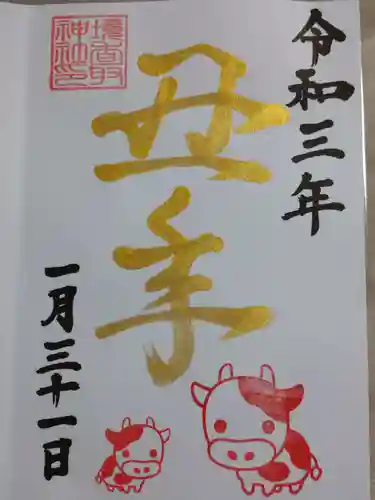 令和三年
丑年
一月三十一日
境香取
神社印